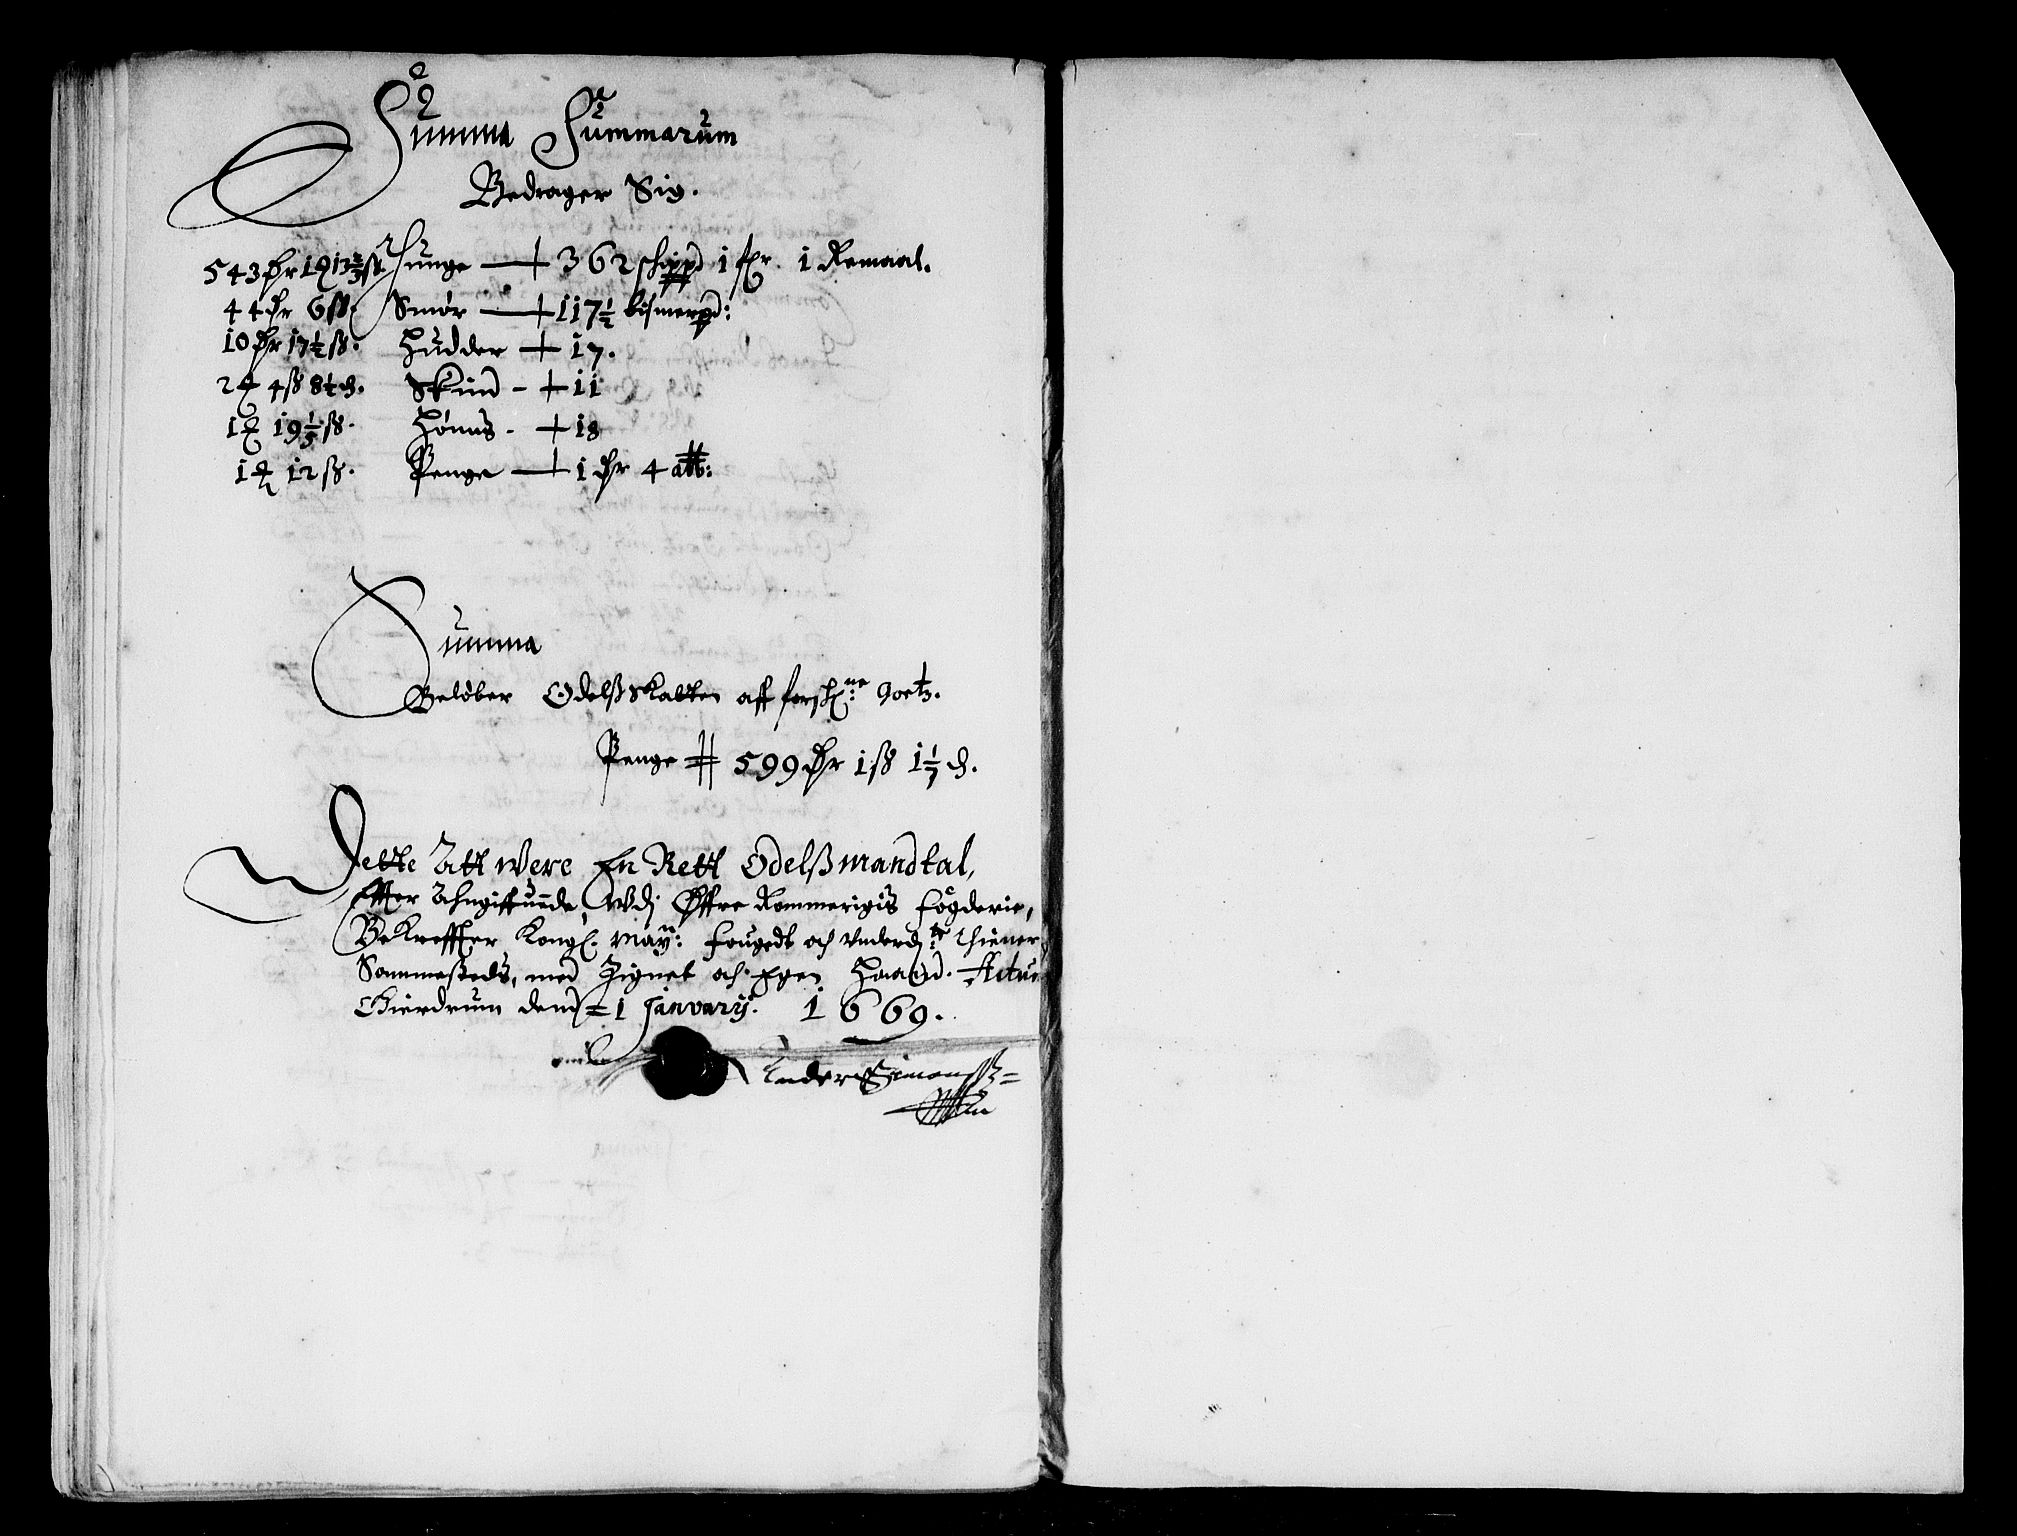 Summa Summarum
Bedrager Sig.
543 Dr 1 13 2/3 ß. Tunge — 362 schippd 1 fr. 1 Remaal.
44 Dr 6 ß. Smør — 117½ bismerpd:
10 Dr 17½ ß. Hudder — 17.
2 4 ß 8½ d. Skind — 11
1 19 1/5 ß. Hønns — 18
1 12 ß. Penge — 1 Dr 4 alb:
Summa
Beløber Odelßskatten aff forschne: goetz.
Penge 599 Dr 1 ß 1 1/7 d.
Dette Att were En Rett Odelßmandtal,
Effter Ahngiffuende, Wdj Øffre Rommerigis Fögderie,
Bekreffter Kongl. Mayn: Fougedt och Underdte: Thiener
Sammesteds, med Zignet och Egen Haand. Actum
Gierdrum den 1 January. 1669.
Ander Simonssz